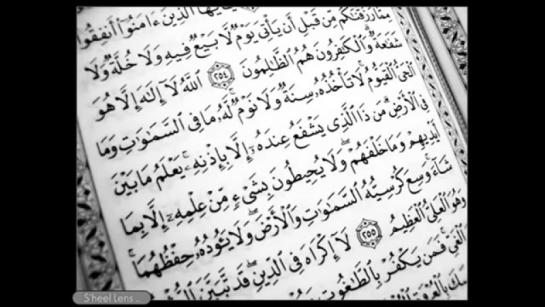 يَٰٓأَيُّهَا ٱلَّذِينَ ءَامَنُوٓا۟ أَنفِقُوا۟
مِمَّا رَزَقْنَٰكُم مِّن قَبْلِ أَن يَأْتِىَ يَوْمٌ لَّا بَيْعٌ فِيهِ وَلَا خُلَّةٌ وَلَا
شَفَٰعَةٌ وَٱلْكَٰفِرُونَ هُمُ ٱلظَّٰلِمُونَ ٢٥٤ ٱللَّهُ لَآ إِلَٰهَ إِلَّا هُوَ
ٱلْحَىُّ ٱلْقَيُّومُ لَا تَأْخُذُهُۥ سِنَةٌ وَلَا نَوْمٌ لَّهُۥ مَا فِى ٱلسَّمَٰوَٰتِ وَمَا
فِى ٱلْأَرْضِ مَن ذَا ٱلَّذِى يَشْفَعُ عِندَهُۥٓ إِلَّا بِإِذْنِهِۦ يَعْلَمُ مَا بَيْنَ
أَيْدِيهِمْ وَمَا خَلْفَهُمْ وَلَا يُحِيطُونَ بِشَىْءٍ مِّنْ عِلْمِهِۦٓ إِلَّا بِمَا
شَآءَ وَسِعَ كُرْسِيُّهُ ٱلسَّمَٰوَٰتِ وَٱلْأَرْضَ وَلَا يَـُٔودُهُۥ حِفْظُهُمَا
وَهُوَ ٱلْعَلِىُّ ٱلْعَظِيمُ ٢٥٥ لَآ إِكْرَاهَ فِى ٱلدِّينِ قَد تَّبَيَّنَ
ٱلْغَىِّ فَمَن يَكْفُرْ بِٱلطَّٰغُوتِ
Sheel Lens ..